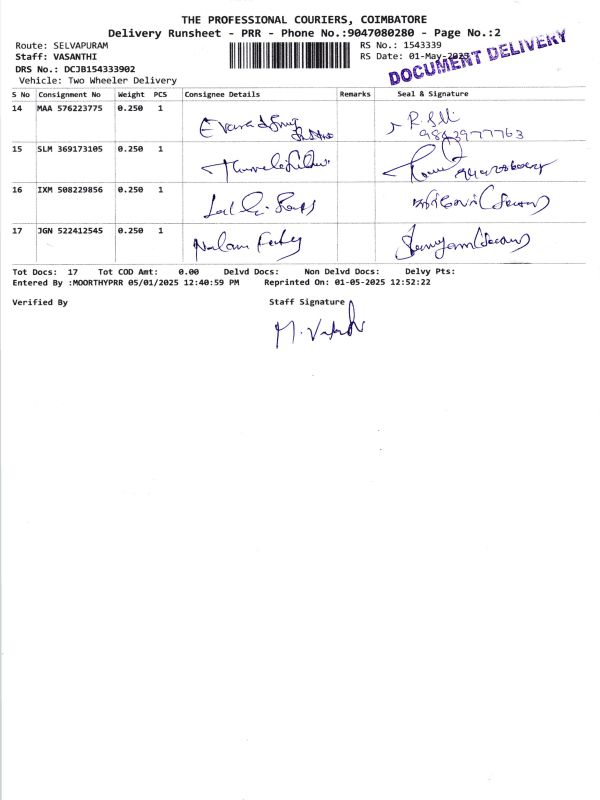 THE PROFESSIONAL COURIERS, COIMBATORE
Delivery Runsheet - PRR - Phone No.:9047080280 - Page No.:2
Route: SELVAPURAM
RS No.: 1543339
Staff: VASANTHI
RS Date: 01-May-2025
DRS No.: DCJB154333902
DOCUMENT DELIVERY
Vehicle: Two Wheeler Delivery
S No Consignment No Weight PCS Consignee Details Remarks Seal & Signature
14 MAA 576223775 0.250 1
9843977763
15 SLM 369173105 0.250 1
16 IXM 508229856 0.250 1
17 JGN 522412545 0.250 1
Tot Docs: 17 Tot COD Amt: 0.00 Delvd Docs: Non Delvd Docs: Delvy Pts:
Entered By :MOORTHYPRR 05/01/2025 12:40:59 PM Reprinted On: 01-05-2025 12:52:22
Verified By Staff Signature